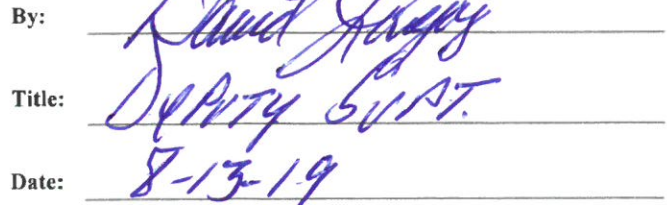 By: David
Title: Deputy Supt.
Date: 8-13-19